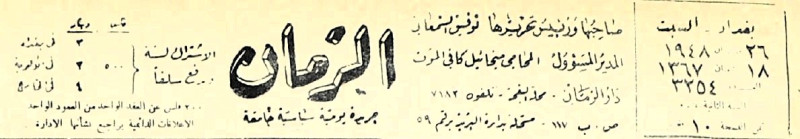 بغداد - السبت
٢٦ ١٩٤٨
١٨ ١٣٦٧
٣٢٥٤
السنة الثانية
ثمن النسخة ١٠
صاحبها ورئيس تحريرها توفيق السمعاني
المدير المسؤول المحامي ميخائيل كافي الموت
دار الزمان - محلة القمر - تلفون ٧١٨٢
ص . ب ١١٧ مسجلة بدارة البريد برقم ٥٩
الزمان
جريدة يومية سياسية جامعة
الاشتراك لسنة
ويدفع سلفاً
فلس دينار
٣ في بغداد
٥٠٠ ٣
٤ في الخارج
٢٠٠ فلس عن العقد الواحد من العمود الواحد
الاعلانات الدائمية يراجع بشأنها الادارة